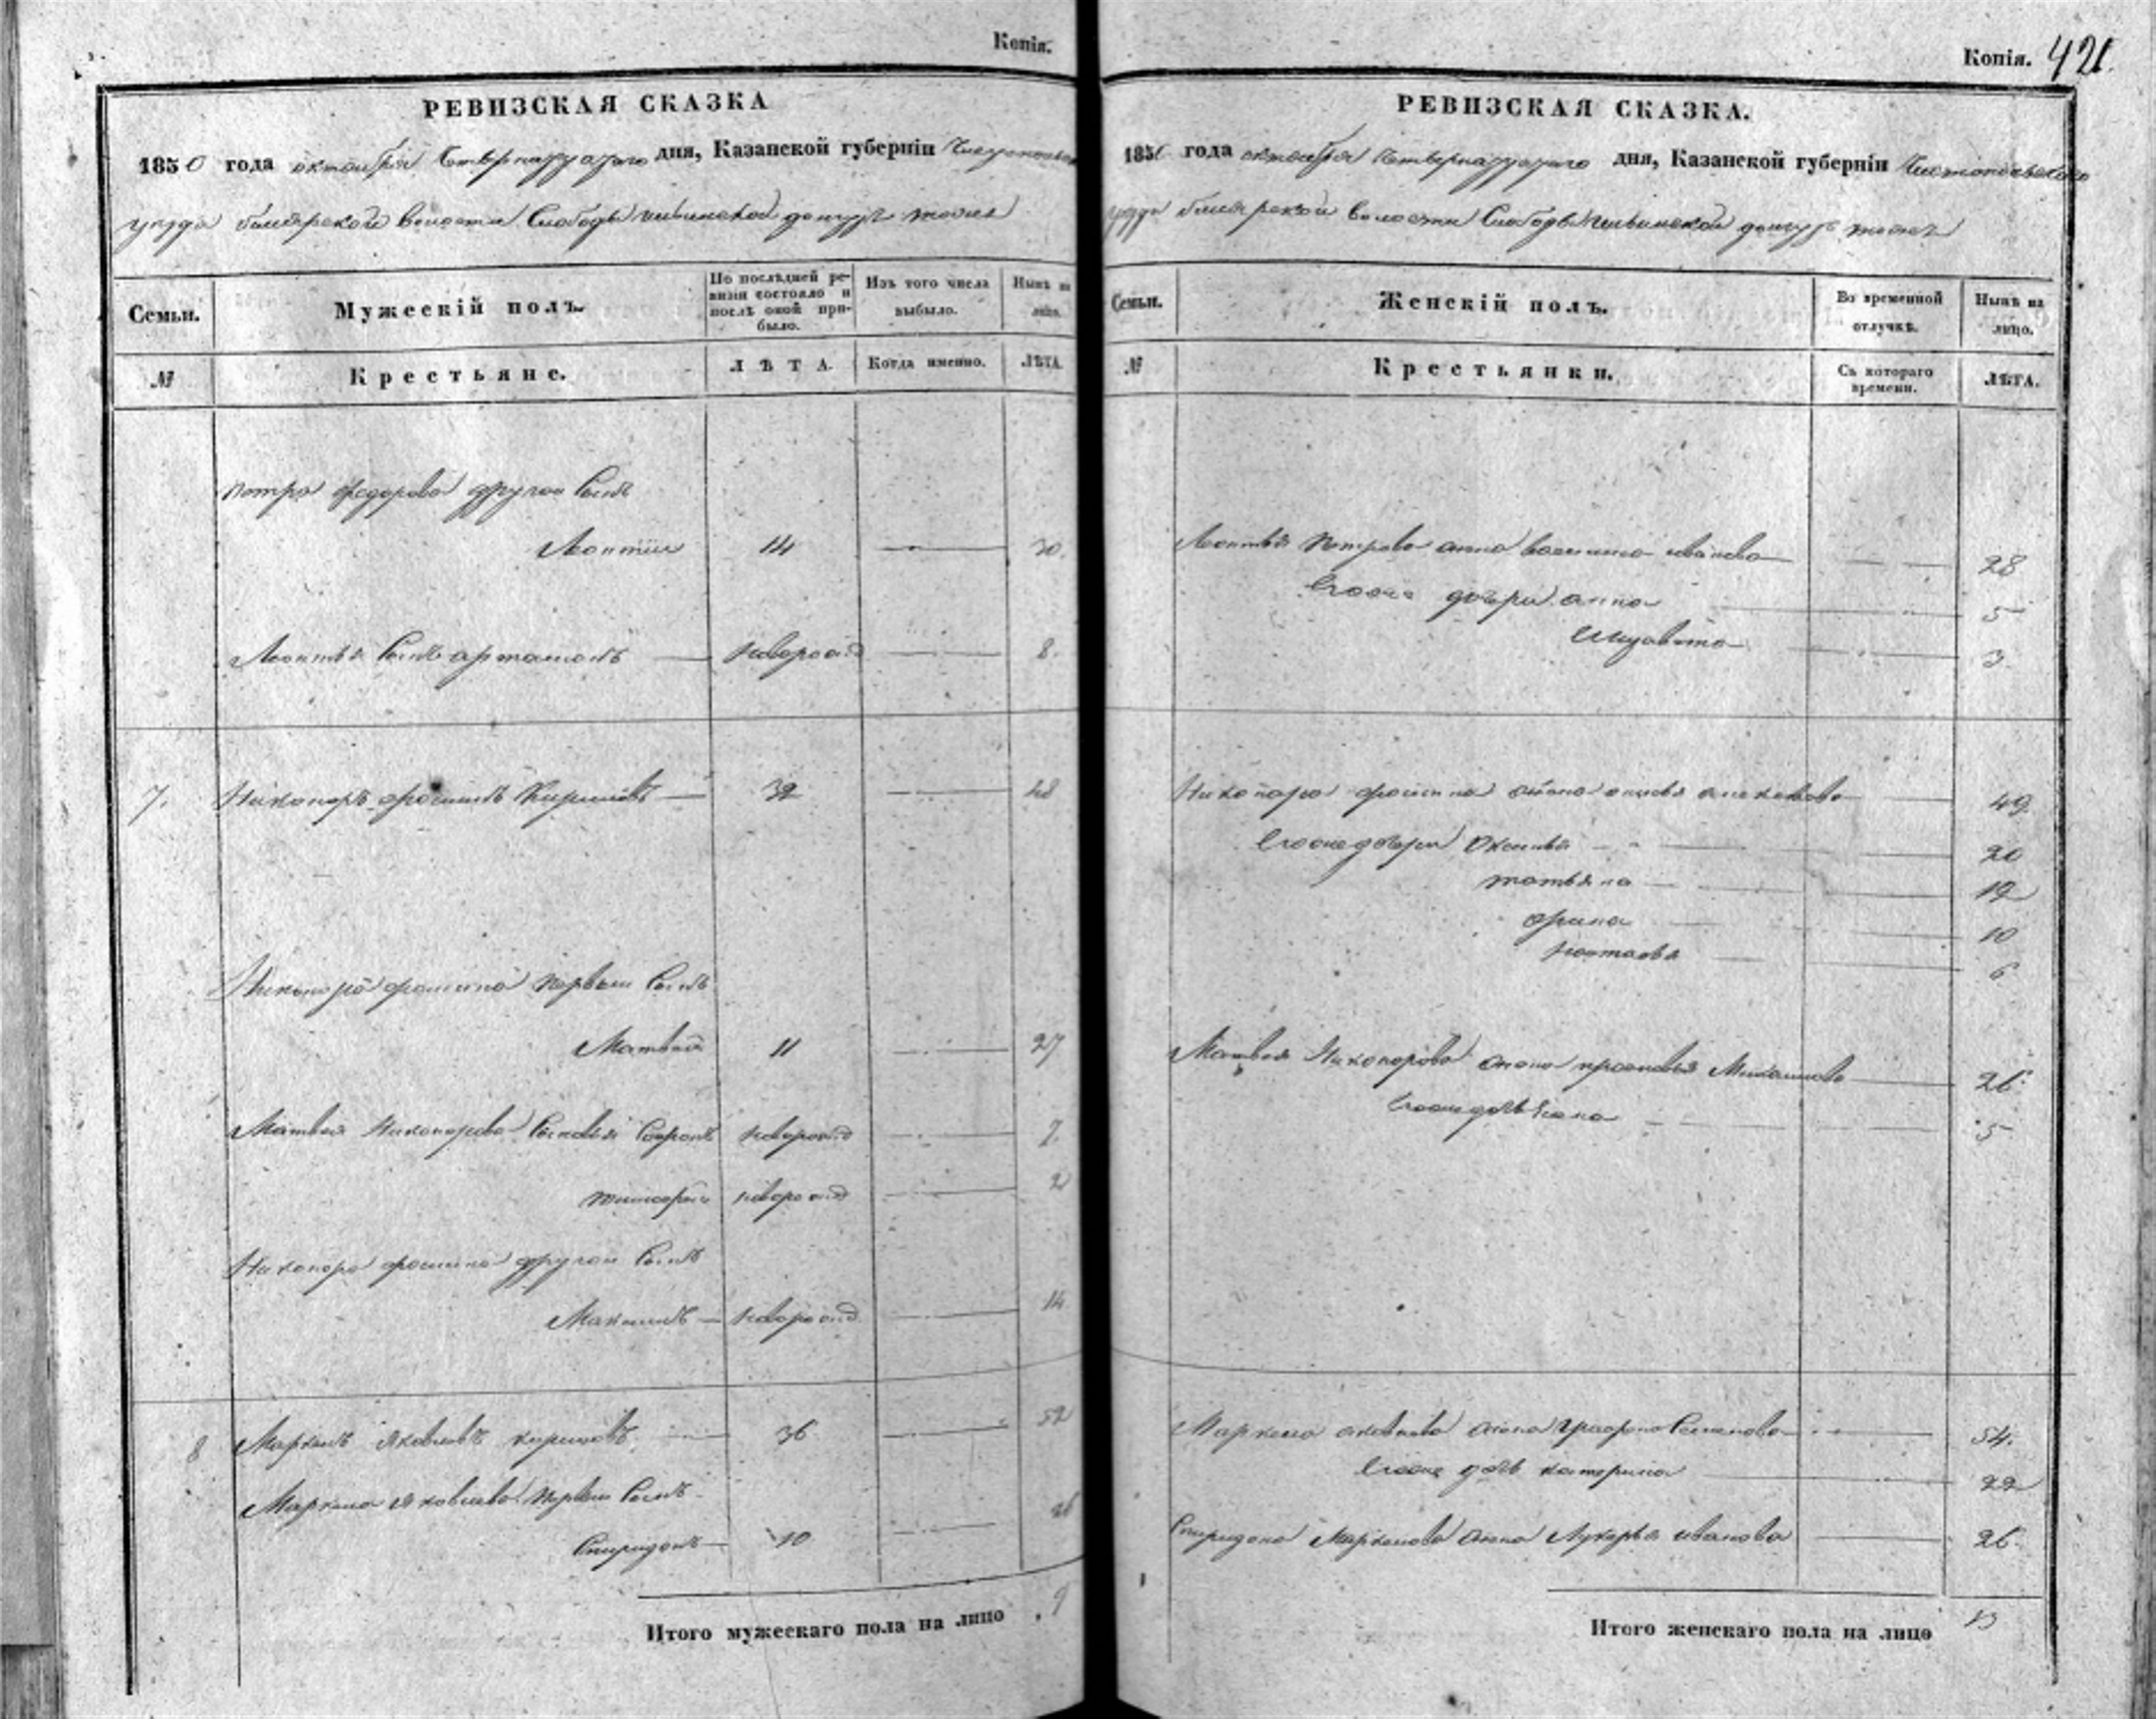 Копія.
РЕВИЗСКАЯ СКАЗКА
1850 года октября Четвертаго дня, Казанской губерніи
уезда билярской волости Слободы
Семьи.
Мужескій полъ.
По послѣдней ревизіи состояло и послѣ оной прибыло.
Изъ того числа выбыло.
Нынѣ на лицо.
№
Крестьяне.
ЛѢТА.
Когда именно.
ЛѢТА.
петра федорова другой Сынъ
Леонтій 14 30.
Леонтья Сынъ артамонъ новорожд 8.
7. Никаноръ фоминъ Кириловъ 32 48
Никанора фомина первый Сынъ
Матвей 11 27
Матвея Никанорова Сыновья Софронъ новорожд 7.
тимофей новорожд 2
Никанора фомина другой Сынъ
Максимъ новорожд 14
8 Маркелъ Яковлевъ кириловъ 36 52
Маркела Яковлева первый Сынъ
Спиридонъ 10 26
Итого мужескаго пола на лицо 9
Копія. 421.
РЕВИЗСКАЯ СКАЗКА.
1850 года октября Четвертаго дня, Казанской губерніи Чистопольскаго
уезда билярской волости Слободы
Семьи.
Женскій полъ.
Во временной отлучкѣ.
Нынѣ на лицо.
№
Крестьянки.
Съ котораго времени.
ЛѢТА.
Леонтья Петрова жена василиса иванова 28
Егоже дочери анна 5
Елизавета 3
Никанора фомина жена алексеева 49
Егоже дочери Оксинья 20
татьяна 12
арина 10
настасья 6
Матвея Никанорова жена прасковья Михайлова 26
Егоже дочь 5
Маркела яковлева жена Аграфена Семенова 54.
Егоже дочь катерина 22
Спиридона Маркелова жена Лукерья иванова 26.
Итого женскаго пола на лицо 13